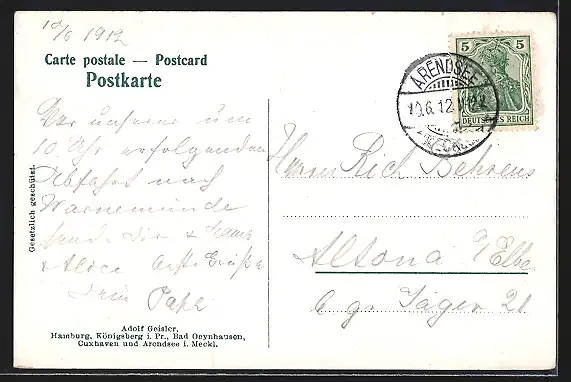 10/6 1912
Carte postale — Postcard
Postkarte
Vor unserer um
10 Uhr erfolgenden
Abfahrt nach
Warnemünde
sende Dir & Hans
& Alice Grüße
Dein Papa
Gesetzlich geschützt.
Adolf Geisler,
Hamburg, Königsberg i. Pr., Bad Oeynhausen,
Cuxhaven und Arendsee i. Meckl.
5 5
DEUTSCHES REICH
ARENDSEE
10.6.12
Herrn Rich Behrens
Altona a/Elbe
gr Jäger 21